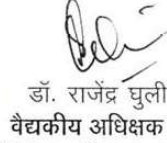 डॉ. राजेंद्र घुली
वैद्यकीय अधिक्षक